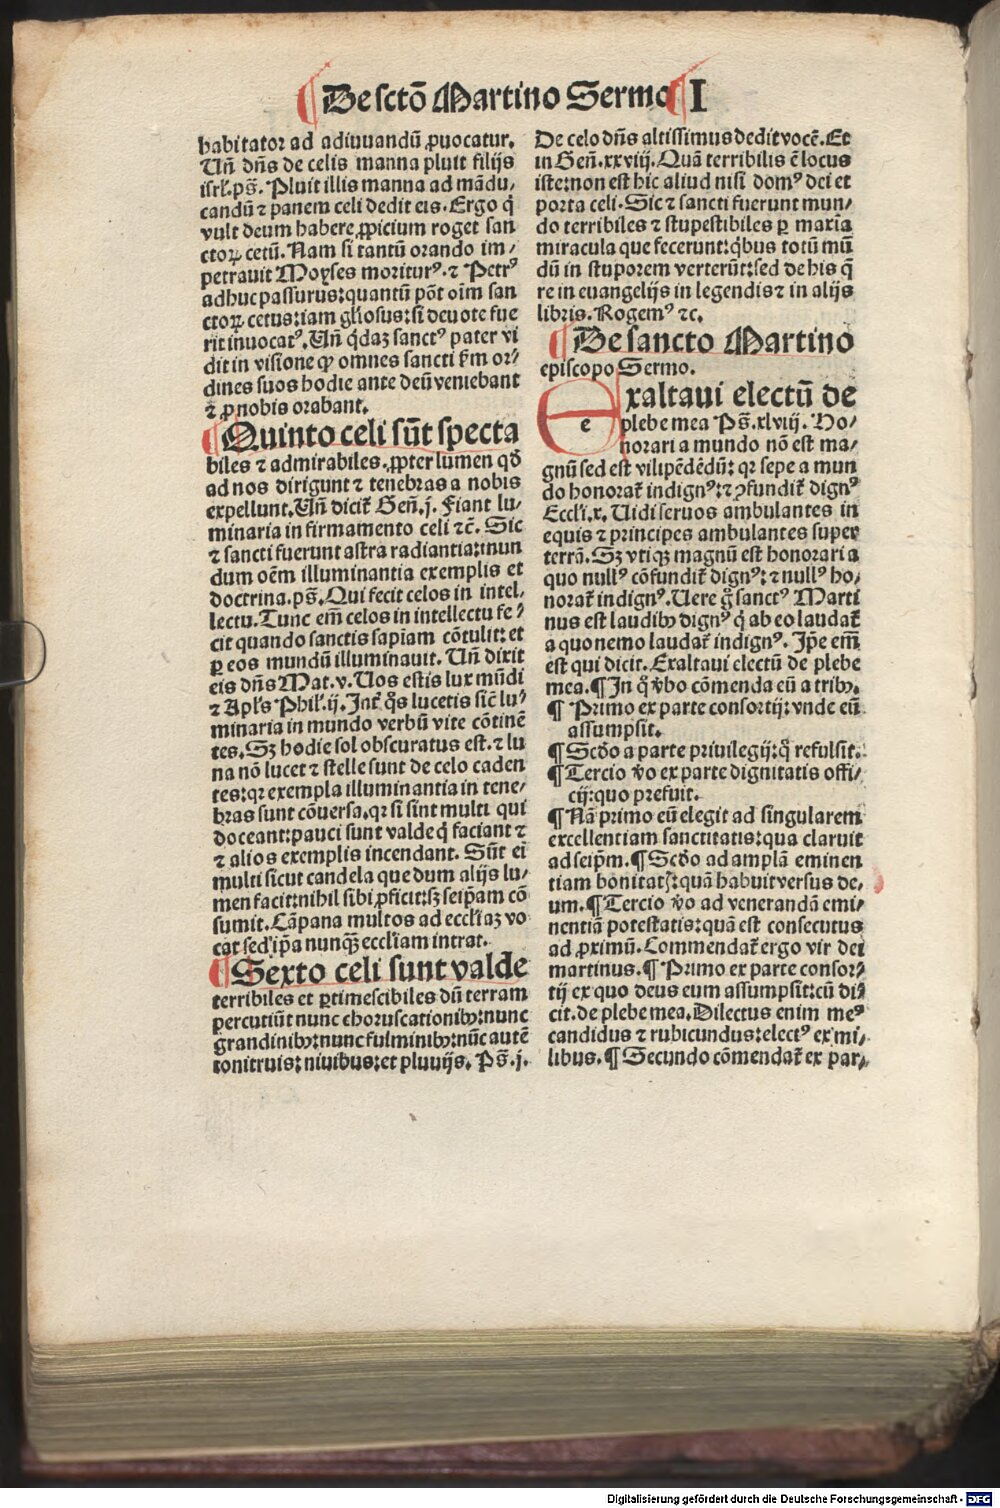 De sctō Martino Sermo I
habitator ad adiuuandū ꝓuocatur.
Uñ dñs de celis manna pluit filijs
isrl̓.ps̄. Pluit illis manna ad mādu⸗
candū ⁊ panem celi dedit eis. Ergo q̇
vult deum habere ꝓpicium roget san
ctoꝝ cetū. Nam si tantū orando im⸗
petrauit Moyses moriturꝰ. ⁊ Petrꝰ
adhuc passurus: quantū pōt oīm san
ctoꝝ cetus: iam gl̓iosus: si deuote fue
rit inuocatꝰ. Uñ q̇daꝫ sanctꝰ pater vi
dit in visione ꝙ omnes sancti ẜm or⸗
dines suos hodie ante deū veniebant
⁊ ꝓ nobis orabant.
¶ Quinto celi sūt specta
biles ⁊ admirabiles. ꝓpter lumen qd̓
ad nos dirigunt ⁊ tenebras a nobis
expellunt. Uñ dicit̄ Geñ.j. Fiant lu⸗
minaria in firmamento celi ⁊c̄. Sic
⁊ sancti fuerunt astra radiantia: mun
dum oēm illuminantia exemplis et
doctrina. ps̄. Qui fecit celos in intel⸗
lectu. Tunc em̄ celos in intellectu fe⸗
cit quando sanctis sapiam cōtulit: et
ꝑ eos mundū illuminauit. Uñ dixit
eis dñs Mat.v. Uos estis lux mūdi
⁊ Apl̓s Phil̓.ij. Int̄ q̊s lucetis sic̄ lu⸗
minaria in mundo verbū vite cōtinē
tes. Sꝫ hodie sol obscuratus est. ⁊ lu
na nō lucet ⁊ stelle sunt de celo caden
tes: qꝛ exempla illuminantia in tene⸗
bras sunt cōuersa. qꝛ si sint multi qui
doceant: pauci sunt valde q̇ faciant ⁊
⁊ alios exemplis incendant. Sūt em̄
multi sicut candela que dum alijs lu⸗
men facit: nihil sibi ꝓficit: sꝫ seip̄am cō
sumit. Cāpana multos ad eccl̓iaꝫ vo
cat sed ip̄a nunqꝫ̄ eccl̓iam intrat.
¶ Sexto celi sunt valde
terribiles et ꝑtimescibiles dū terram
percutiūt nunc choruscationibꝫ: nunc
grandinibꝫ: nunc fulminibꝫ: nūc autē
tonitruis: niuibus: et pluuijs. Ps̄.j.
De celo dñs altissimus dedit vocē. Et
in Geñ.xxviij. Quā terribilis ē locus
iste: non est hic aliud nisi domꝰ dei et
porta celi. Sic ⁊ sancti fuerunt mun⸗
do terribiles ⁊ stupestibiles ꝑ maxia
miracula que fecerunt: q̇bus totū mū
dū in stuporem verterūt: sed de his q̄
re in euangelijs in legendis ⁊ in alijs
libris. Rogemꝰ ⁊c.
¶ De sancto Martino
episcopo Sermo.
Exaltaui electū de
plebe mea Ps̄.xlviij. Ho⸗
norari a mundo nō est ma⸗
gnū sed est vilipēdēdū: qꝛ sepe a mun
do honorat̄ indignꝰ: ⁊ ꝯfundit̄ dignꝰ
Eccl̓i.x. Uidi seruos ambulantes in
equis ⁊ principes ambulantes super
terrā. Sꝫ vtiqꝫ magnū est honorari a
quo nullꝰ cōfundit̄ dignꝰ: ⁊ nullꝰ ho⸗
norat̄ indignꝰ. Uere g̊ sanctꝰ Marti
nus est laudibꝫ dignꝰ q̇ ab eo laudat̄
a quo nemo laudat̄ indignꝰ. Ip̄e em̄
est qui dicit. Exaltaui electū de plebe
mea. ¶ In q̊ v̓bo cōmenda eū a tribꝫ.
¶ Primo ex parte consortij: vnde eū
assumpsit.
¶ Scd̓o a parte priuilegij: q̊ refulsit.
¶ Tercio v̓o ex parte dignitatis offi⸗
cij: quo prefuit.
¶ Nā primo eū elegit ad singularem
excellentiam sanctitatis: qua claruit
ad seip̄m. ¶ Scd̓o ad amplā eminen
tiam bonitat̑: quā habuit versus de⸗
um. ¶ Tercio v̓o ad venerandā emi⸗
nentiā potestatis: quā est consecutus
ad ꝓximū. Commendat̄ ergo vir dei
martinus. ¶ Primo ex parte consor⸗
tij ex quo deus eum assumpsit: cū di⸗
cit. de plebe mea. Dilectus enim meꝰ
candidus ⁊ rubicundus: electꝰ ex mi⸗
libus. ¶ Secundo cōmendat̄ ex par⸗
Digitalisierung gefördert durch die Deutsche Forschungsgemeinschaft - DFG